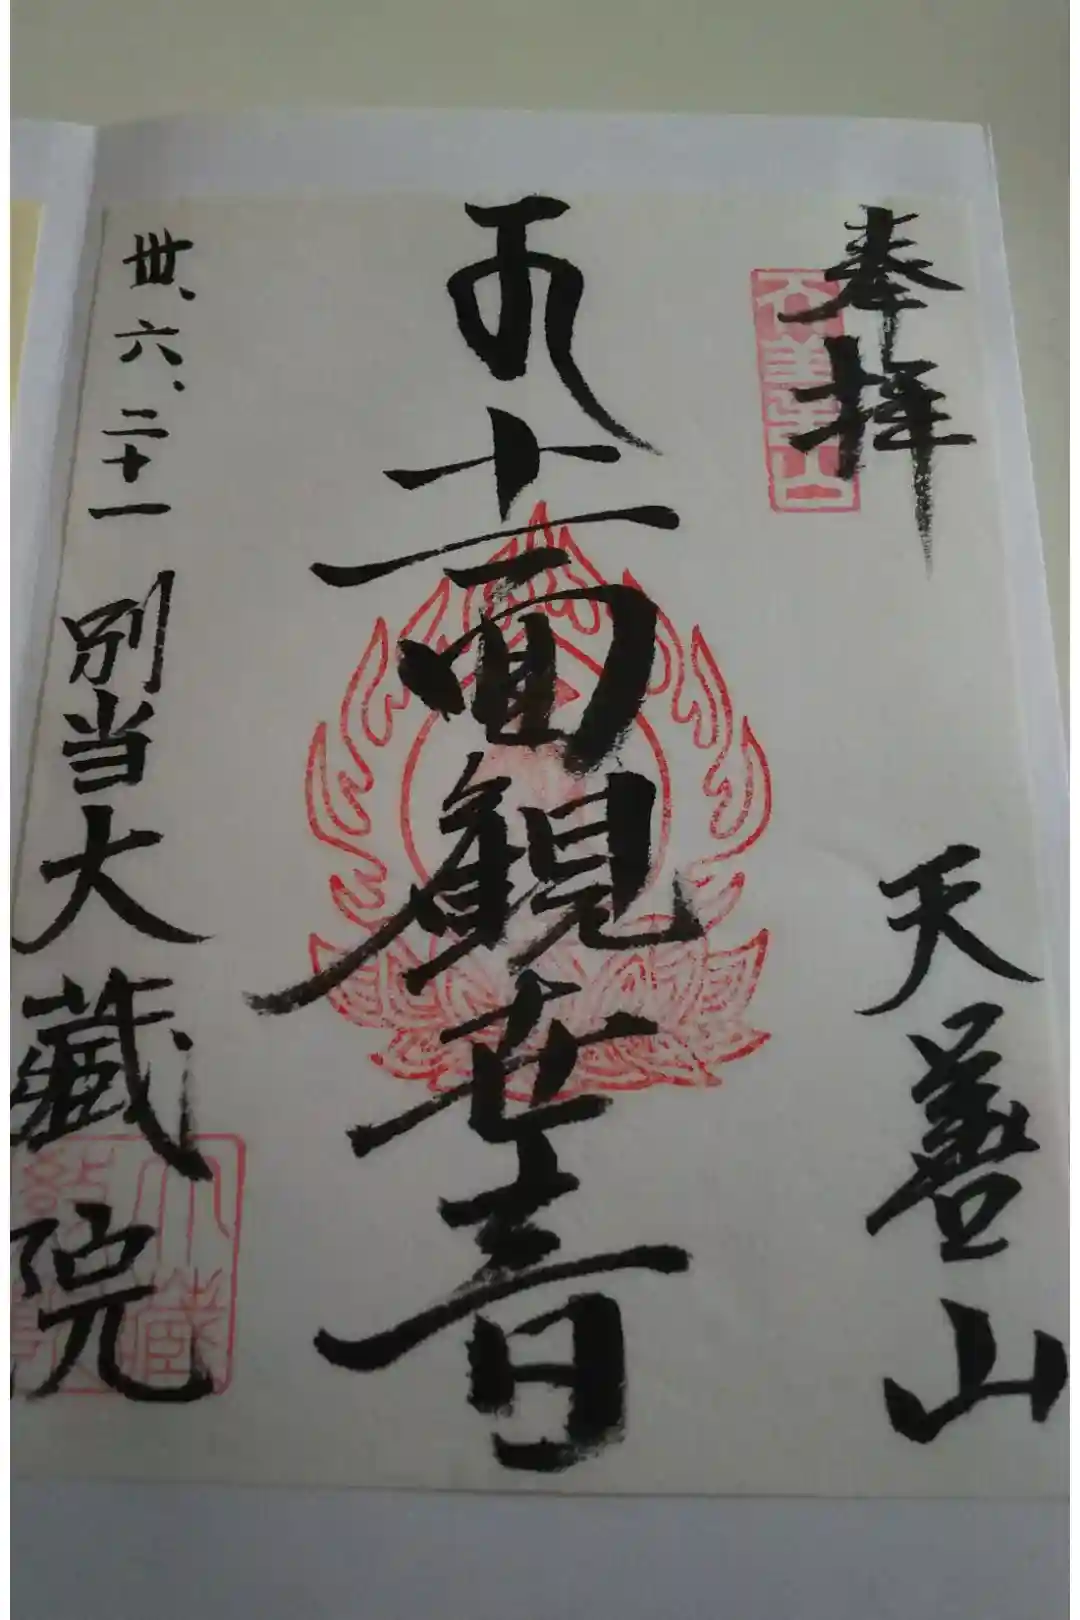 奉拝
天善山
十一面観世音
卅、六、二十一 別当大蔵院